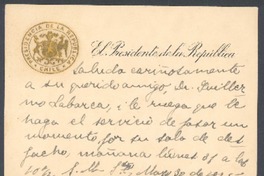 PRESIDENCIA DE LA REPUBLICA
CHILE
El Presidente de la República
Saluda cariñosamente
a su querido amigo Dn. Guiller
mo Labarca, i le ruega que le
haga el servicio de pasar un
momento, por su sala de des
pacho, mañana lunes 31 a las
10½ A. M. Mayo 30 de